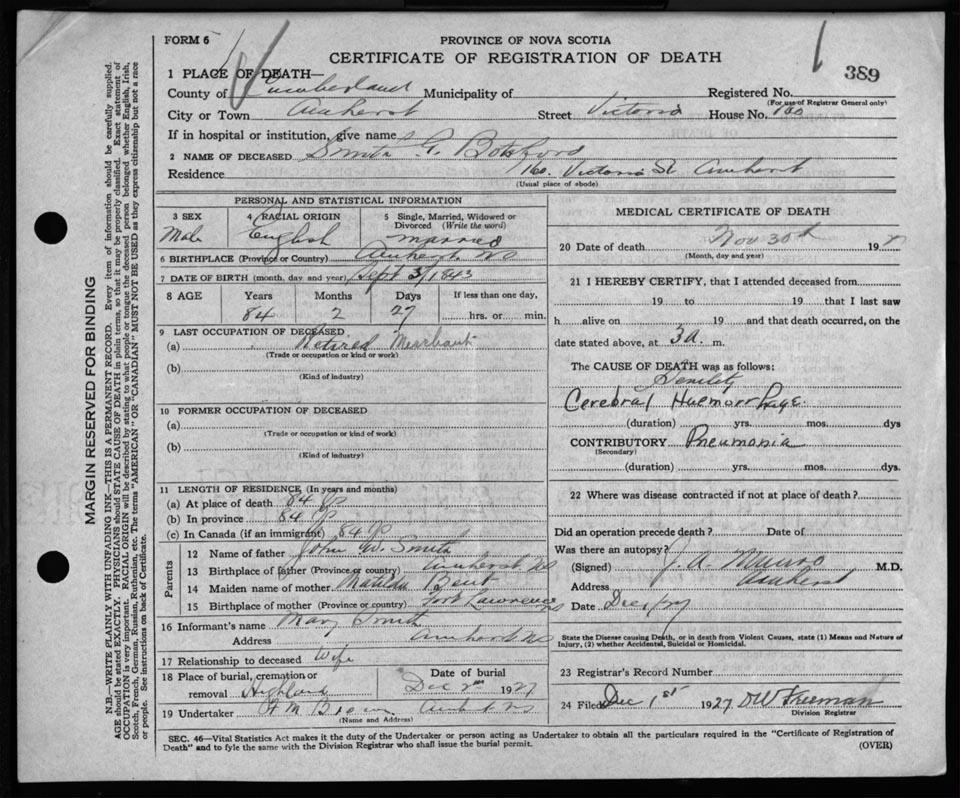 FORM 6
PROVINCE OF NOVA SCOTIA
CERTIFICATE OF REGISTRATION OF DEATH
389
1 PLACE OF DEATH—
County of Cumberland Municipality of Registered No.
(For use of Registrar General only)
City or Town Amherst Street Victoria House No. 160
If in hospital or institution, give name
2 NAME OF DECEASED Smith G. Botsford
Residence 160 Victoria St Amherst
(Usual place of abode)
PERSONAL AND STATISTICAL INFORMATION
3 SEX 4 RACIAL ORIGIN 5 Single, Married, Widowed or Divorced (Write the word)
Male English married
6 BIRTHPLACE (Province or Country) Amherst NS
7 DATE OF BIRTH (month, day and year) Sept 3/1843
8 AGE Years Months Days If less than one day,
84 2 27 hrs. or min.
9 LAST OCCUPATION OF DECEASED
(a) Retired Merchant
(Trade or occupation or kind or work)
(b)
(Kind of industry)
10 FORMER OCCUPATION OF DECEASED
(a)
(Trade or occupation or kind or work)
(b)
(Kind of industry)
11 LENGTH OF RESIDENCE (In years and months)
(a) At place of death 84 yrs
(b) In province 84 yrs
(c) In Canada (if an immigrant) 84 yrs
Parents
12 Name of father John W. Smith
13 Birthplace of father (Province or country) Amherst NS
14 Maiden name of mother Matilda Bent
15 Birthplace of mother (Province or country) Fort Lawrence NS
16 Informant's name Mary Smith
Address Amherst NS
17 Relationship to deceased Wife
18 Place of burial, cremation or removal Highland Date of burial Dec 2nd 1927
19 Undertaker Amherst NS
(Name and Address)
MEDICAL CERTIFICATE OF DEATH
20 Date of death Nov 30th 192
(Month, day and year)
21 I HEREBY CERTIFY, that I attended deceased from
19 to 19 that I last saw
h alive on 19 and that death occurred, on the
date stated above, at 3 a. m.
The CAUSE OF DEATH was as follows:
Senility
Cerebral Haemorrhage.
(duration) yrs. mos. dys
CONTRIBUTORY Pneumonia
(Secondary)
(duration) yrs. mos. dys.
22 Where was disease contracted if not at place of death?
Did an operation precede death? Date of
Was there an autopsy?
(Signed) J. A. Munro M.D.
Address Amherst
Date Dec 1/27
State the Disease causing Death, or in death from Violent Causes, state (1) Means and Nature of
Injury, (2) whether Accidental, Suicidal or Homicidal.
23 Registrar's Record Number
24 Filed Dec 1st 1927. DW Freeman
Division Registrar
SEC. 46—Vital Statistics Act makes it the duty of the Undertaker or person acting as Undertaker to obtain all the particulars required in the "Certificate of Registration of
Death" and to fyle the same with the Division Registrar who shall issue the burial permit.
(OVER)
MARGIN RESERVED FOR BINDING
N.B.—WRITE PLAINLY WITH UNFADING INK—THIS IS A PERMANENT RECORD. Every item of information should be carefully supplied.
AGE should be stated EXACTLY. PHYSICIANS should STATE CAUSE OF DEATH in plain terms, so that it may be properly classified. Exact statement of
OCCUPATION is very important. RACIAL ORIGIN will be described by stating to what people or tongue the deceased person belonged whether English, Irish,
Scotch, French, German, Russian, Ruthenian, etc. The terms "AMERICAN" OR "CANADIAN" MUST NOT BE USED as they express citizenship but not a race
or people. See instructions on back of Certificate.